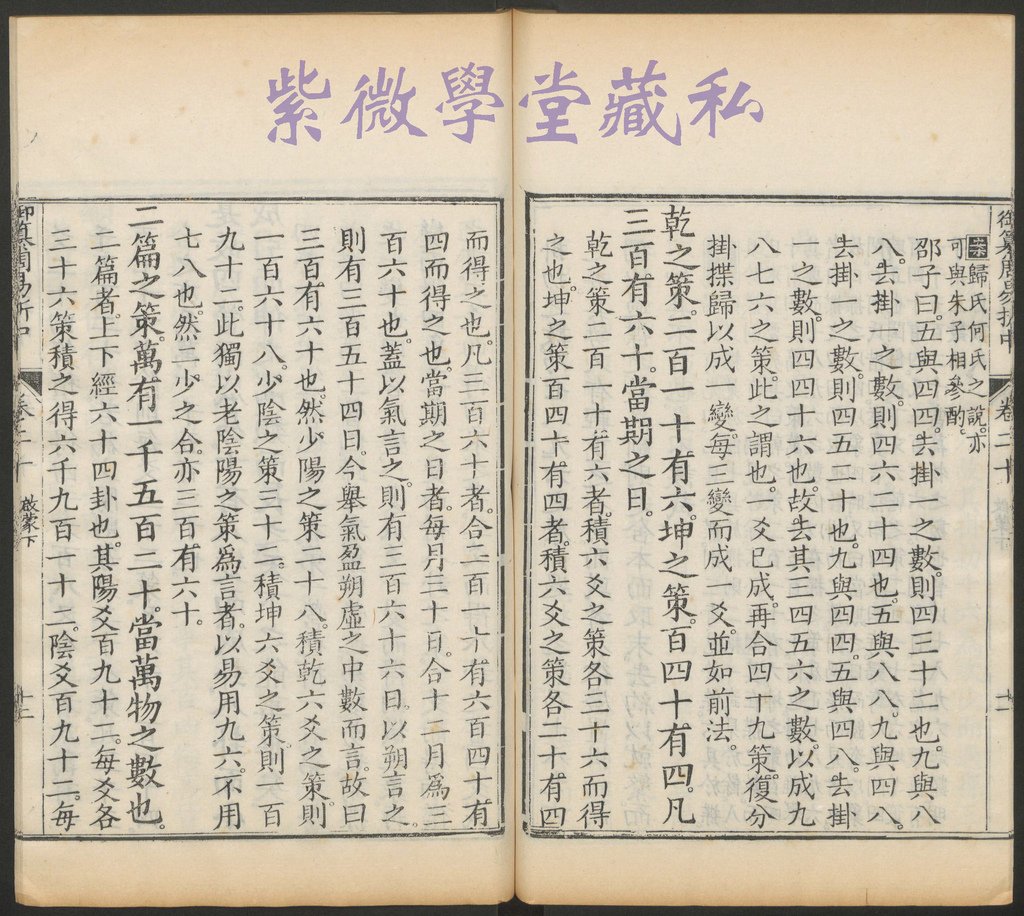 紫微學堂藏私
御纂周易折中 卷二十 十一
案歸氏何氏之說。亦
可與朱子相參酌。
邵子曰。五與四四。去掛一之數。則四三十二也。九與八
八。去掛一之數。則四六二十四也。五與八八。九與四八。
去掛一之數。則四五二十也。九與四四。五與四八。去掛
一之數。則四四十六也。故去其三四五六之數。以成九
八七六之策。此之謂也。一爻已成。再合四十九策。復分
掛揲歸以成一變。每三變而成一爻。並如前法。
乾之策。二百一十有六。坤之策。百四十有四。凡
三百有六十。當期之日。
乾之策二百一十有六者。積六爻之策各三十六而得
之也。坤之策百四十有四者。積六爻之策各二十有四
而得之也。凡三百六十者。合二百一十有六百四十有
四而得之也。當期之日者。每月三十日。合十二月爲三
百六十也。蓋以氣言之。則有三百六十六日。以朔言之。
則有三百五十四日。今舉氣盈朔虛之中數而言。故曰
三百有六十也。然少陽之策二十八。積乾六爻之策。則
一百六十八。少陰之策三十二。積坤六爻之策。則一百
九十二。此獨以老陰陽之策爲言者。以易用九六。不用
七八也。然二少之合。亦三百有六十。
二篇之策。萬有一千五百二十。當萬物之數也。
二篇者。上下經六十四卦也。其陽爻百九十二。每爻各
三十六策。積之得六千九百一十二。陰爻百九十二。每
御纂周易折中 卷二十 啟蒙下 十二